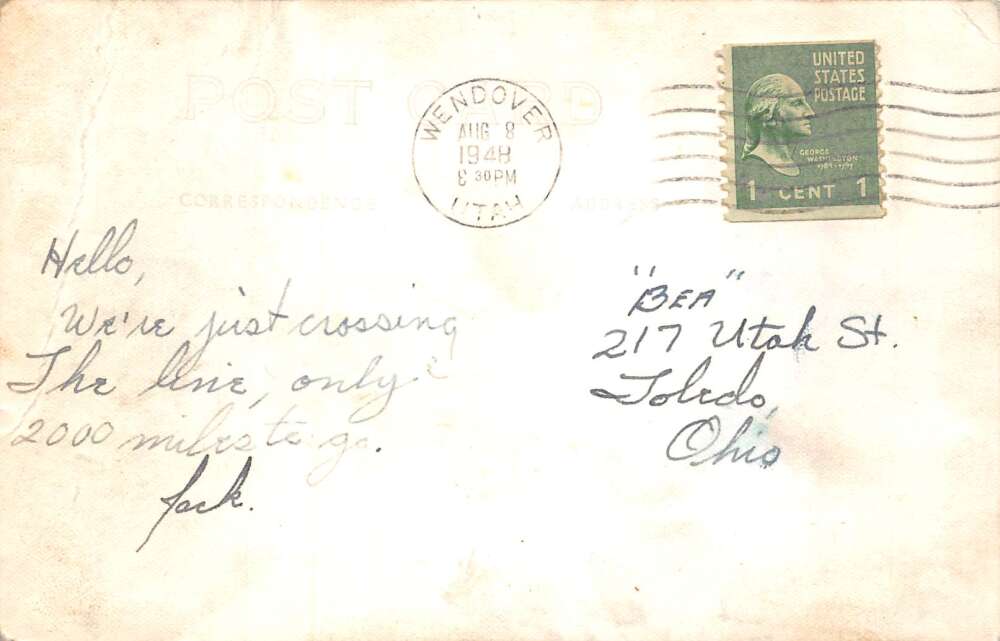 POST CARD
WENDOVER
AUG 8
1948
8 30 PM
UTAH
UNITED
STATES
POSTAGE
GEORGE
WASHINGTON
1789-1797
1 CENT 1
CORRESPONDENCE
ADDRESS
Hello,
We're just crossing
The line, only
2000 miles to go.
Jack.
"BEA"
217 Utah St.
Toledo,
Ohio